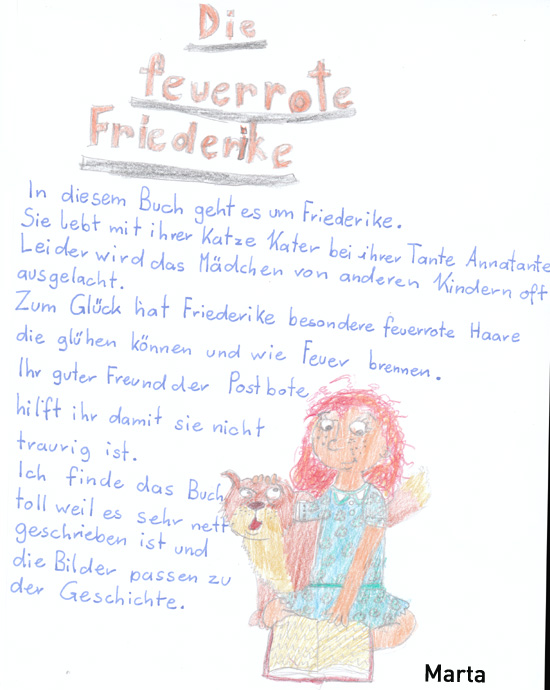 Die
feuerrote
Friederike
In diesem Buch geht es um Friederike.
Sie lebt mit ihrer Katze Kater bei ihrer Tante Annatante
Leider wird das Mädchen von anderen Kindern oft
ausgelacht.
Zum Glück hat Friederike besondere feuerrote Haare
die glühen können und wie Feuer brennen.
Ihr guter Freund der Postbote
hilft ihr damit sie nicht
traurig ist.
Ich finde das Buch
toll weil es sehr nett
geschrieben ist und
die Bilder passen zu
der Geschichte.
Marta